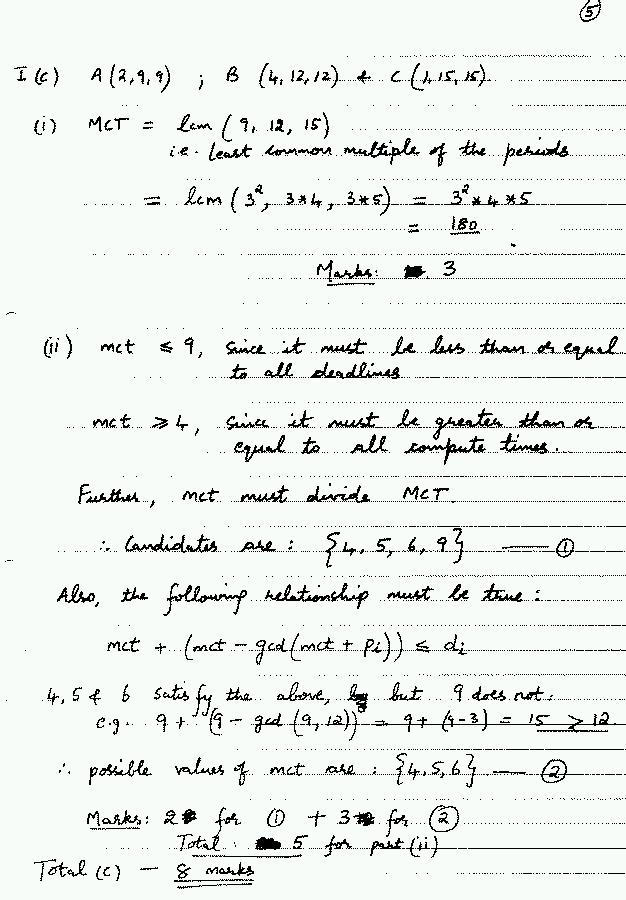 ⑤
I (c) A (2,9,9) ; B (4,12,12) & C (1,15,15)
(i) MCT = lcm (9, 12, 15)
i.e. least common multiple of the periods
= lcm (3², 3*4, 3*5) = 3² * 4 * 5
= 180
Marks: 3
(ii) mct ≤ 9, since it must be less than or equal
to all deadlines
mct ≥ 4, since it must be greater than or
equal to all compute times.
Further, mct must divide MCT.
∴ Candidates are : {4, 5, 6, 9} — ①
Also, the following relationship must be true :
mct + (mct - gcd(mct + Pi)) ≤ di
4, 5 & 6 satisfy the above, but 9 does not:
e.g. 9 + (9 - gcd (9, 12)) = 9 + (9-3) = 15 ≥ 12
∴ possible values of mct are : {4,5,6} — ②
Marks: 2 for ① + 3 for ②
Total : 5 for part (ii)
Total (c) — 8 marks